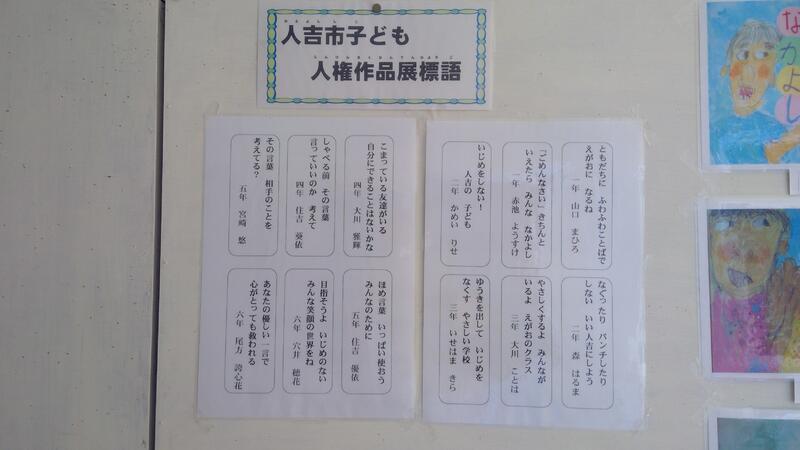 人吉市子ども
人権作品展標語
ともだちに ふわふわことばで
えがおに なるね
一年 山口 まひろ
「ごめんなさい」きちんと
いえたら みんな なかよし
一年 赤池 ようすけ
いじめをしない!
人吉の 子ども
二年 かめい りせ
なぐったり パンチしたり
しない いい人吉にしよう
二年 森 はるま
やさしくするよ みんなが
いるよ えがおのクラス
三年 大川 ことは
ゆうきを出して いじめを
なくす やさしい学校
三年 いせはま きら
こまっている友達がいる
自分にできることはないかな
四年 大川 雅輝
しゃべる前 その言葉
言っていいのか 考えて
四年 住吉 葵依
その言葉 相手のことを
考えてる?
五年 宮崎 悠
ほめ言葉 いっぱい使おう
みんなのために
五年 住吉 優依
目指そうよ いじめのない
みんな笑顔の世界をね
六年 穴井 穂花
あなたの優しい 一言で
心がとっても救われる
六年 尾方 誇心花
なかよし